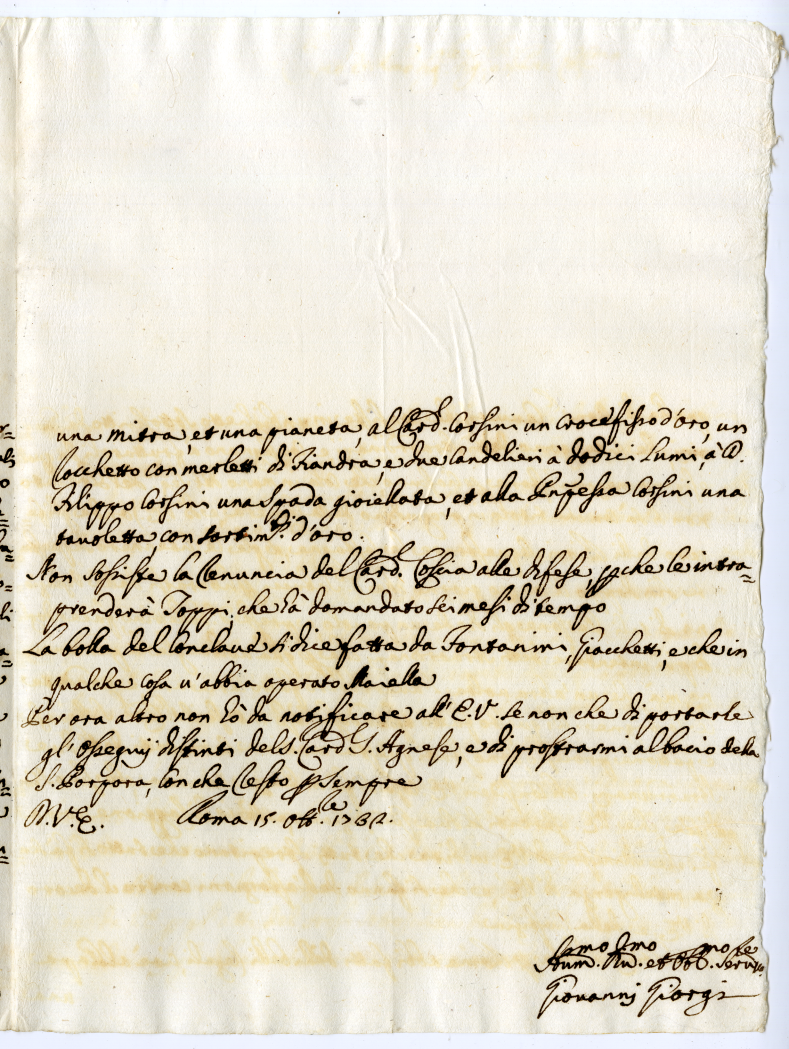 una mitra, et una pianeta, al Card.l Corsini un crocefisso d'oro, un
Rocchetto con merletti di Fiandra, e due Candelieri à dodici Lumi, à D.
Filippo Corsini una Spada gioiellata, et alla Pnp̃essa Corsini una
tavoletta, con sortim.ti d'oro.
Non sussiste la renuncia del Card.l Coscia alle difese, p che le intra=
prenderà Toppi, che hà domandato sei mesi di tempo
La bolla del Conclave si dice fatta da Fontanini, Giacchetti, e che in
qualche cosa v'abbia operato Maiella
Per ora altro non hò da notificare all'E.V. se non che di portarle
gl'ossequij distinti del S. Card.l S. Agnese, e di prostrarmi al bacio della
S. Porpora, con che resto p sempre
D.V.E. Roma 15. Ott.re 1732.
Hum.mo Dev.mo et Obb.mo Serv.re
Giovannj Giorgi